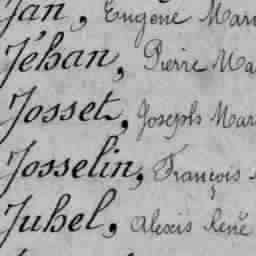 Jan, Eugène Mari
Jéhan, Pierre Ma
Josset, Joseph Mar
Josselin, François
Juhel, Alexis René